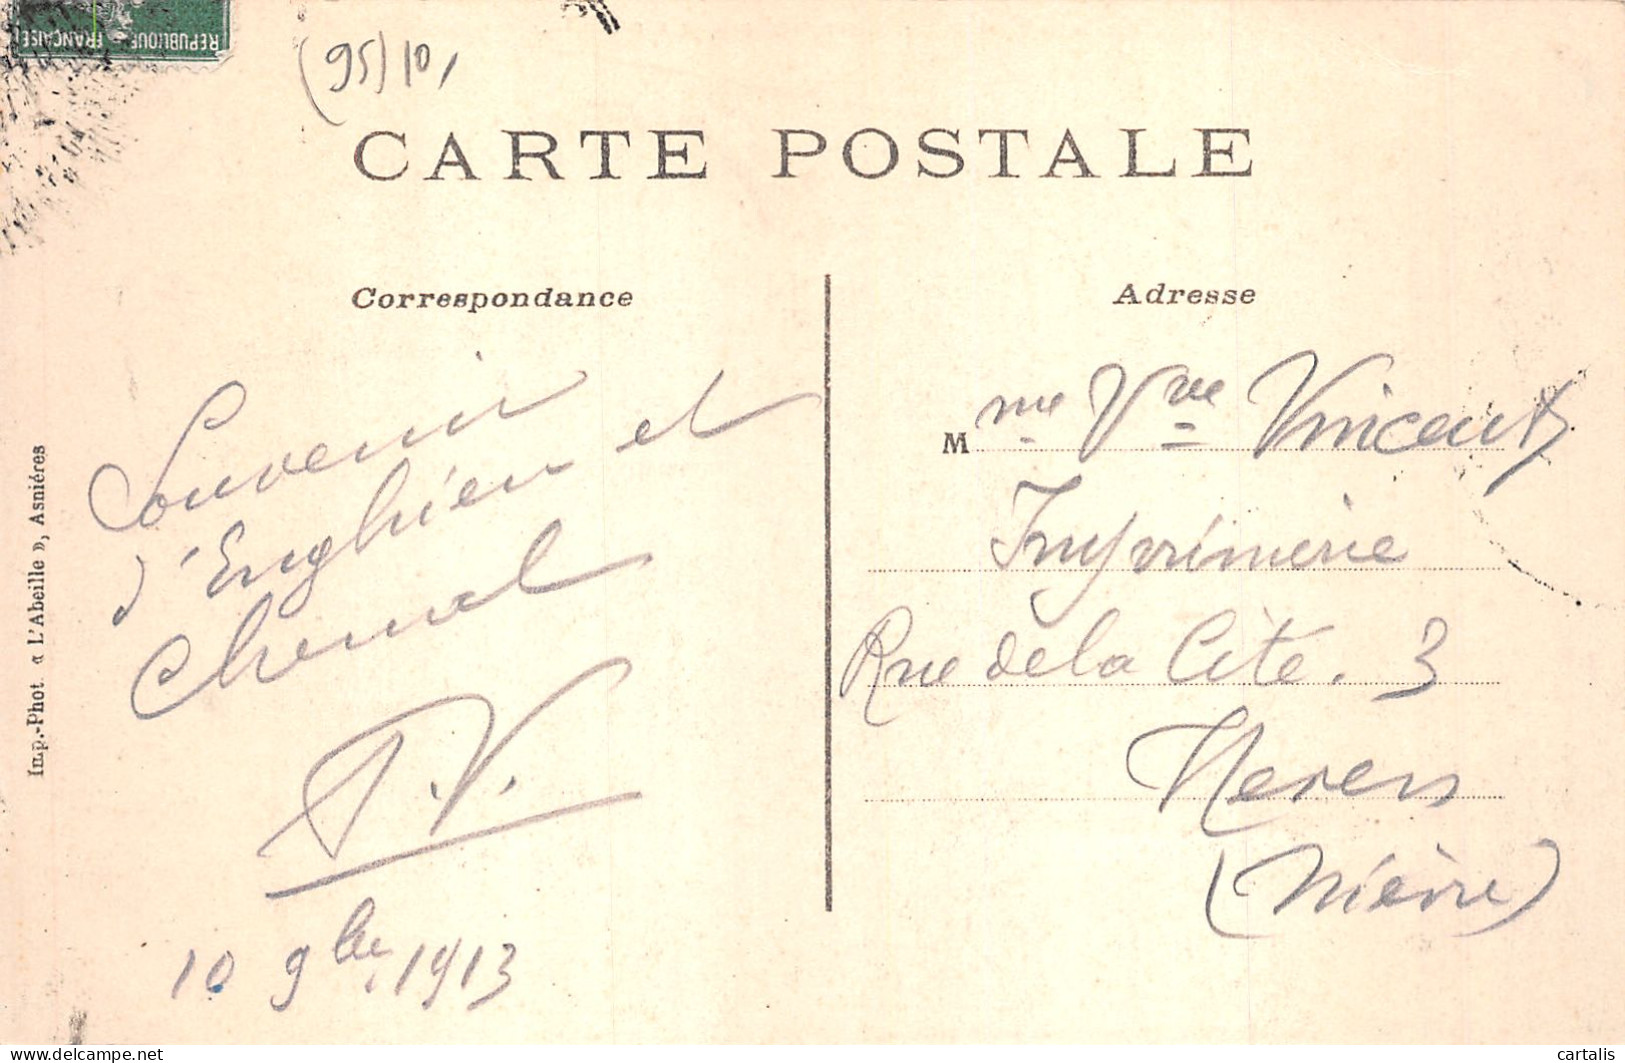 REPUBLIQUE FRANÇAISE
(95) 10,
CARTE POSTALE
Correspondance
Adresse
Souvenir
d'Enghien et
P.V.
10 9bre 1913
Mme Vve Vincent
Imprimerie
Rue de la Cité. 3
Nevers
(Nièvre)
Imp.-Phot. « L'Abeille », Asniéres
cartalis
delcampe.net